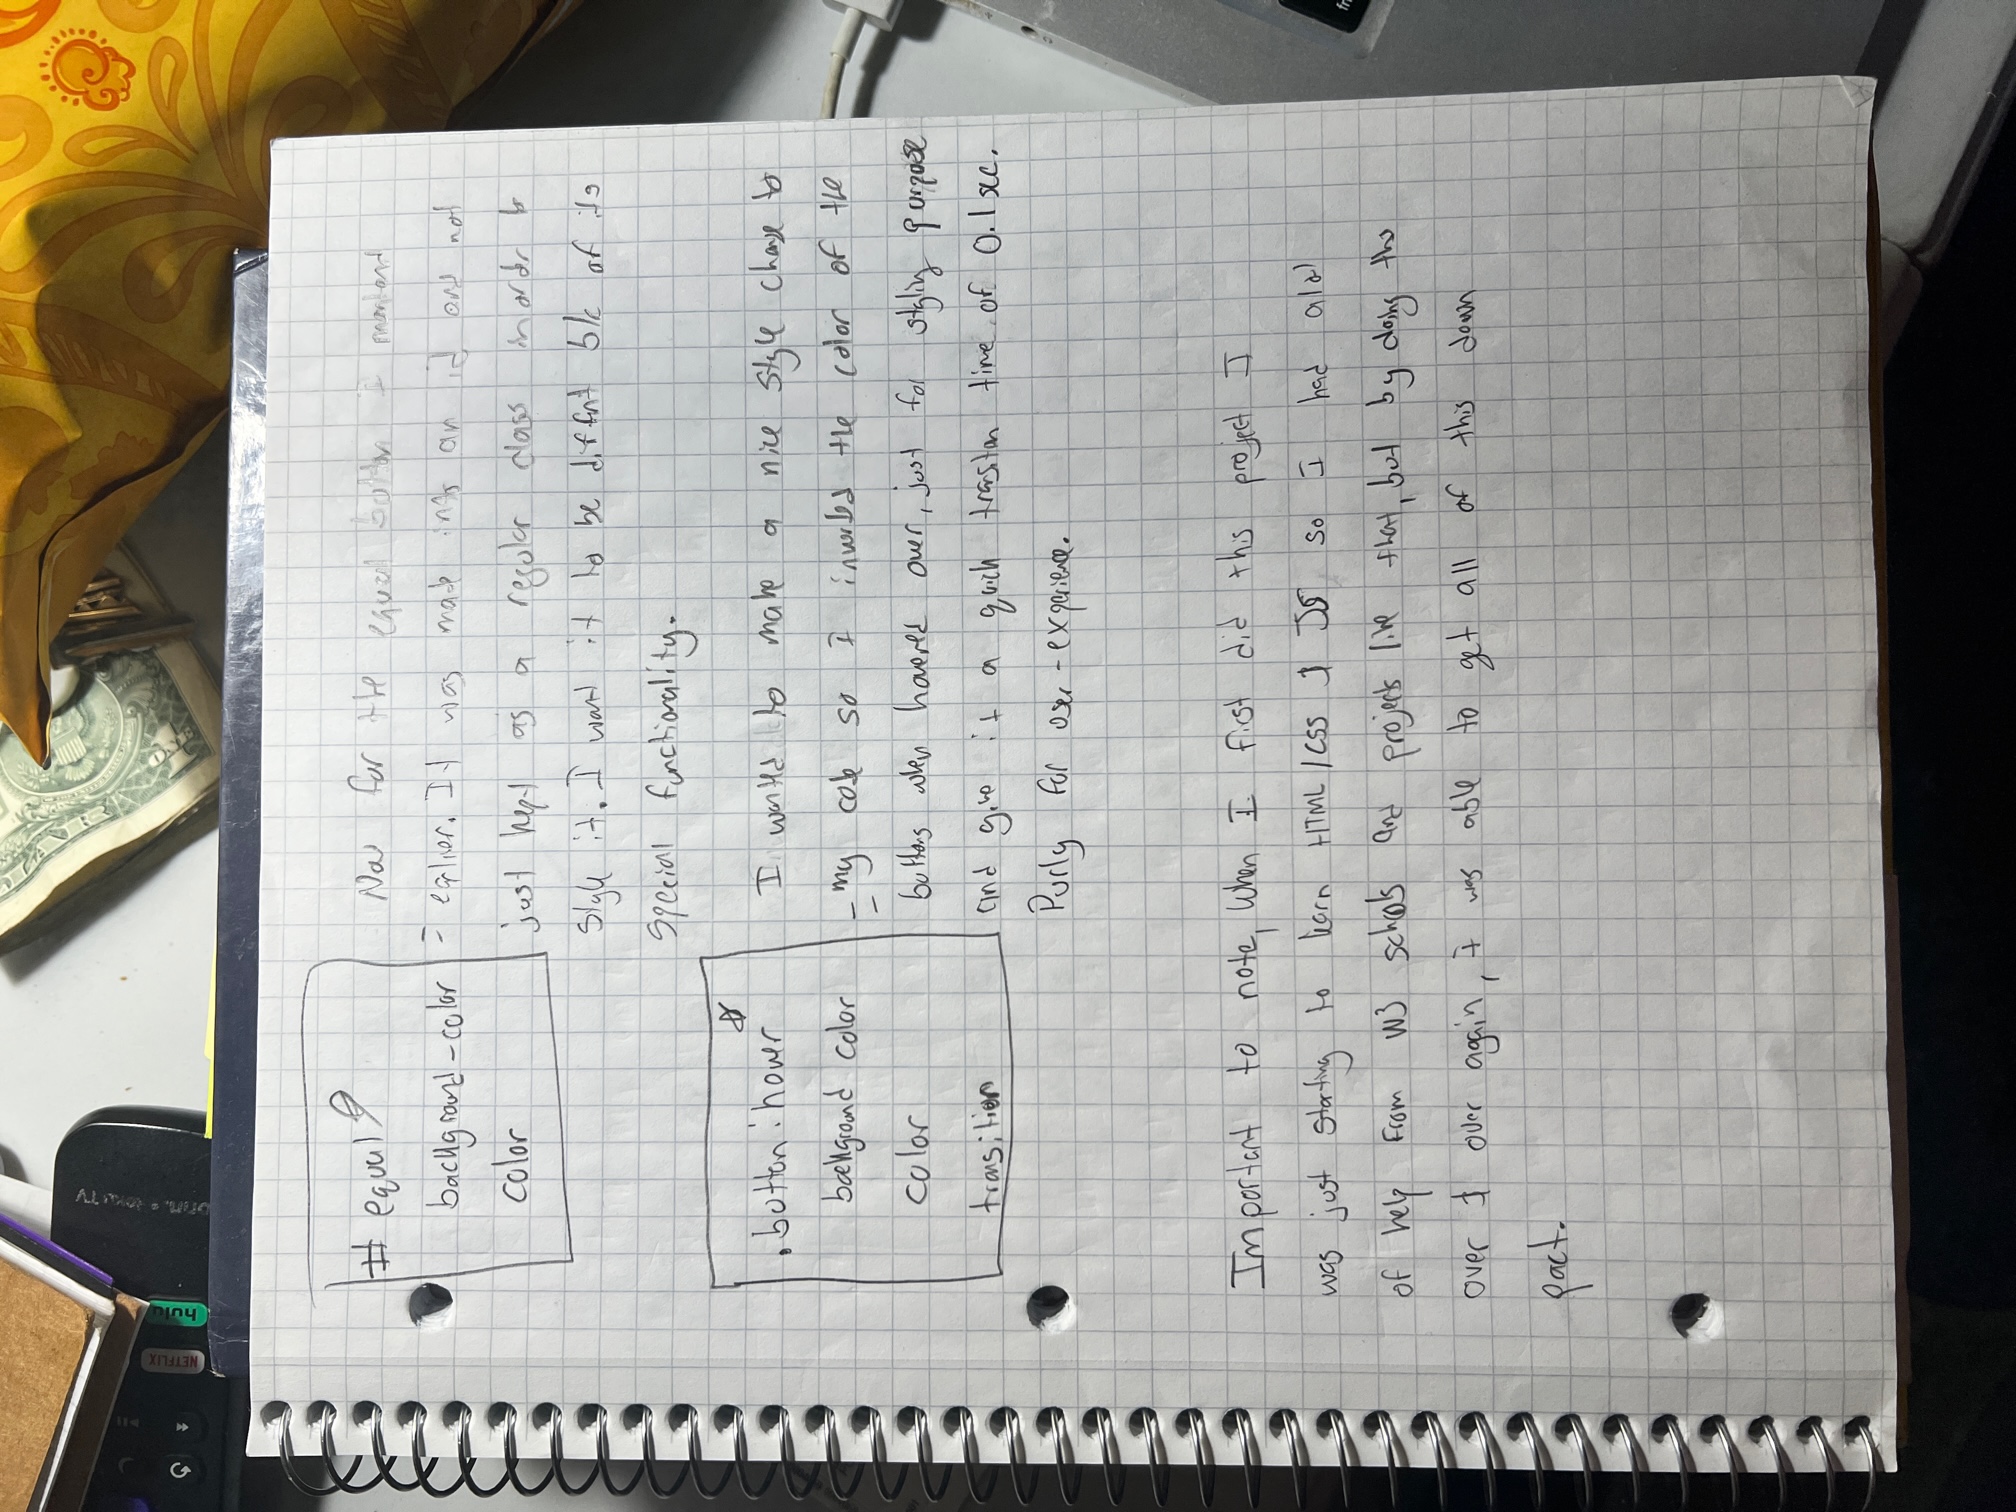 NETFLIX
hulu
ONE
# equal
background-color
color
Now for the equal button I
= earlier. It was made into an id and not
just kept as a regular class inorder to
style it. I want it to be diffrnt b/c of its
special functionality.
.button:hover
background color
color
transition
I wanted to make a nice style change to
= my code so I inverted the color of the
buttons when hovered over, just for styling purpose
and give it a quick transiton time of 0.1 sec.
Purly for user-experience.
Important to note, when I first did this project I
was just starting to learn HTML/CSS & JS so I had alot
of help from W3 schools and projects like that, but by doing this
over & over again, I was able to get all of this down
pact.